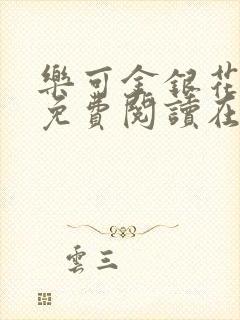 樂可金銀花
免費閱讀在
雲三